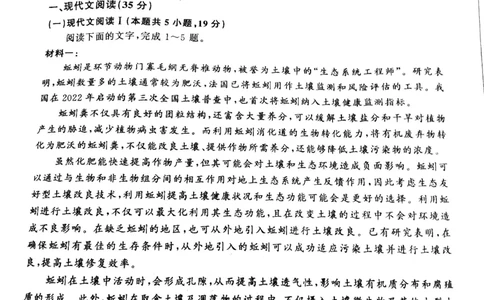 一、现代文阅读(35分)
(一)现代文阅读Ⅰ(本题共5小题,19分)
阅读下面的文字,完成1~5题。
材料一:
蚯蚓是环节动物门寡毛纲无脊椎动物,被誉为土壤中的“生态系统工程师”。研究表
明,蚯蚓数量多的土壤通常较为肥沃,法国已将蚯蚓用作土壤监测和风险评估的工具。我
国在2022年启动的第三次全国土壤普查中,也首次将蚯蚓纳入土壤健康监测指标。
蚯蚓粪不仅具有良好的团粒结构,还富含大量养分,可以缓解土壤盐分和干旱对植物
产生的胁迫,减少植物病虫害发生。而利用蚯蚓消化道的生物转化能力,将有机废弃物转
化为肥沃的蚯蚓粪,不仅能改良土壤、提供作物所需养分,还能够降低土壤污染物的浓度。
虽然化肥能快速提高作物产量,但其可能会对土壤和生态环境造成负面影响。蚯蚓可
以通过与生物和非生物组分间的相互作用对地上生态系统产生反馈作用,因此考虑生态友
好型土壤改良技术,利用蚯蚓提高土壤健康状况和生态功能可能会是更好的选择。利用蚯
蚓进行土壤改良,不仅可以最大化利用其生态功能,且在改变土壤的过程中不会对环境造
成不良影响。在缺乏蚯蚓的地区,也可从外地引入蚯蚓进行土壤改良。已有研究表明,在
确保蚯蚓有最佳的生存条件时,从外地引入的蚯蚓可以成功适应污染土壤并进行土壤改
良,提高土壤修复效率。
蚯蚓在土壤中活动时,会形成孔隙,从而提高土壤透气性,影响土壤有机质分布和腐殖
质的形成。此外,蚯蚓在取食土壤及凋落物的过程中,不仅